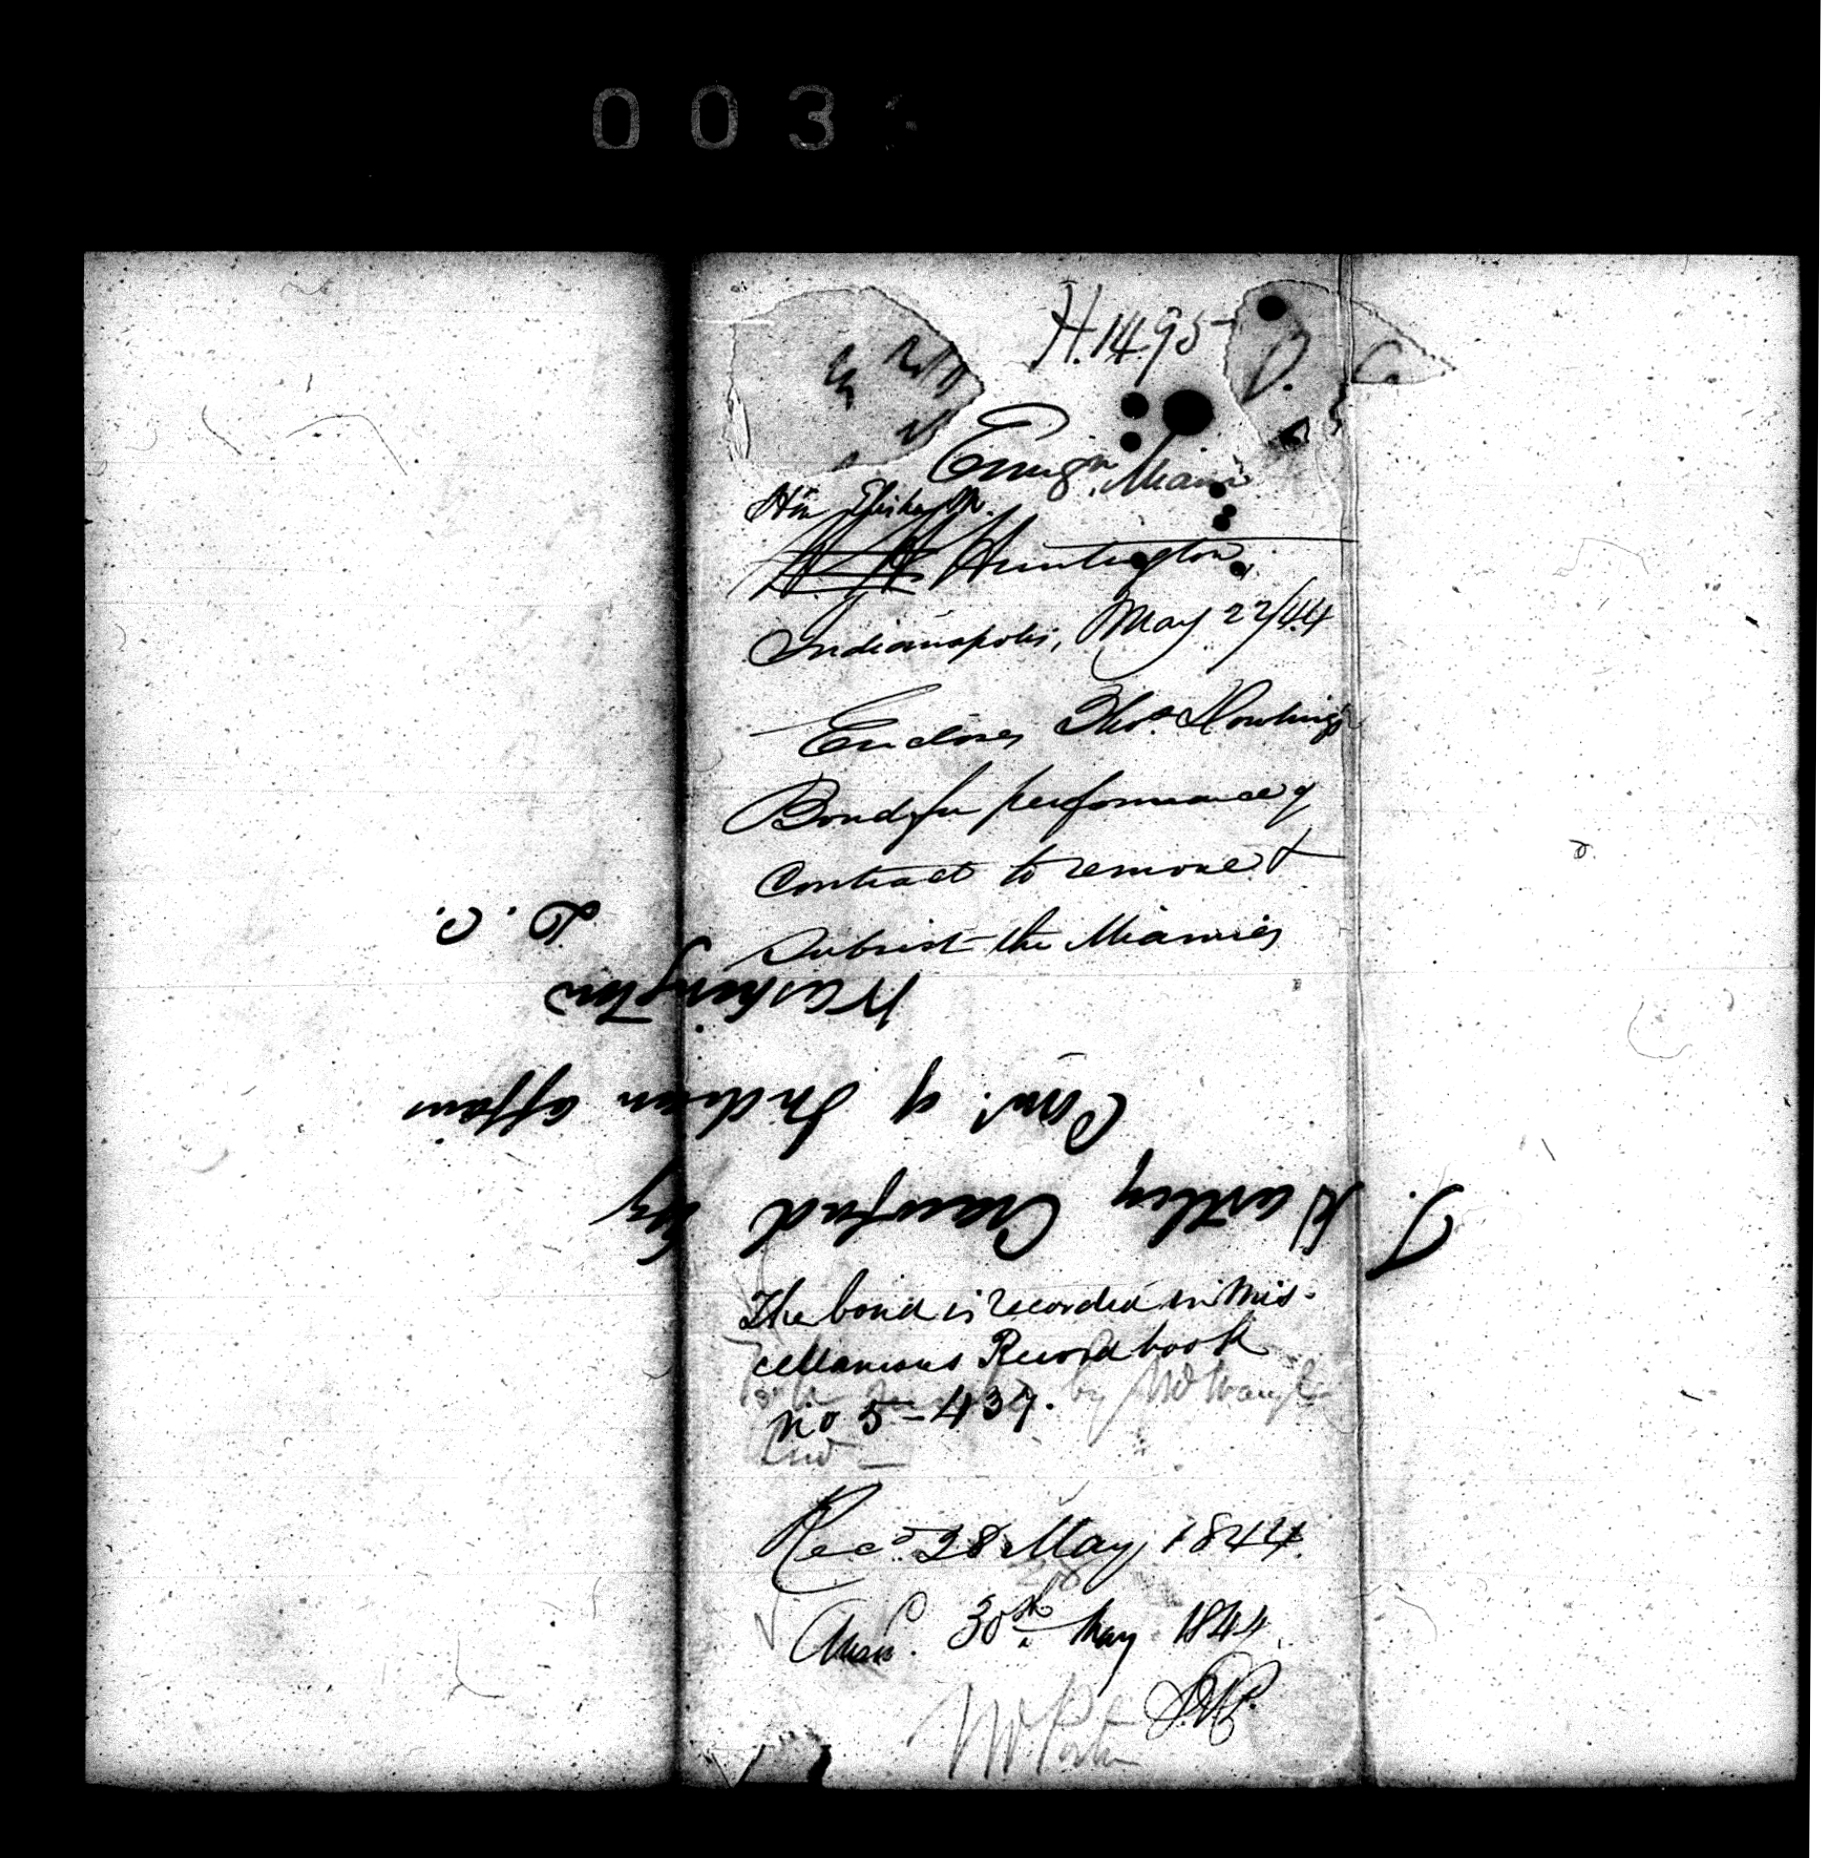 003
H.1495
Emign. Miami
Hon Elisha M.
Huntington,
Indianapolis, May 22/44
Encloses Thos. Dowling's
Bond for performance of
Contract to remove &
subsist the Miamies
T. Hartley Crawford Esq
Comr. of Indian affairs
Washington
D. C.
The bond is recorded in Mis-
cellaneous Record book
no 5 - 437.
by
Recd. 28 May, 1844.
Ansd. 30th May 1844
Mr Porter